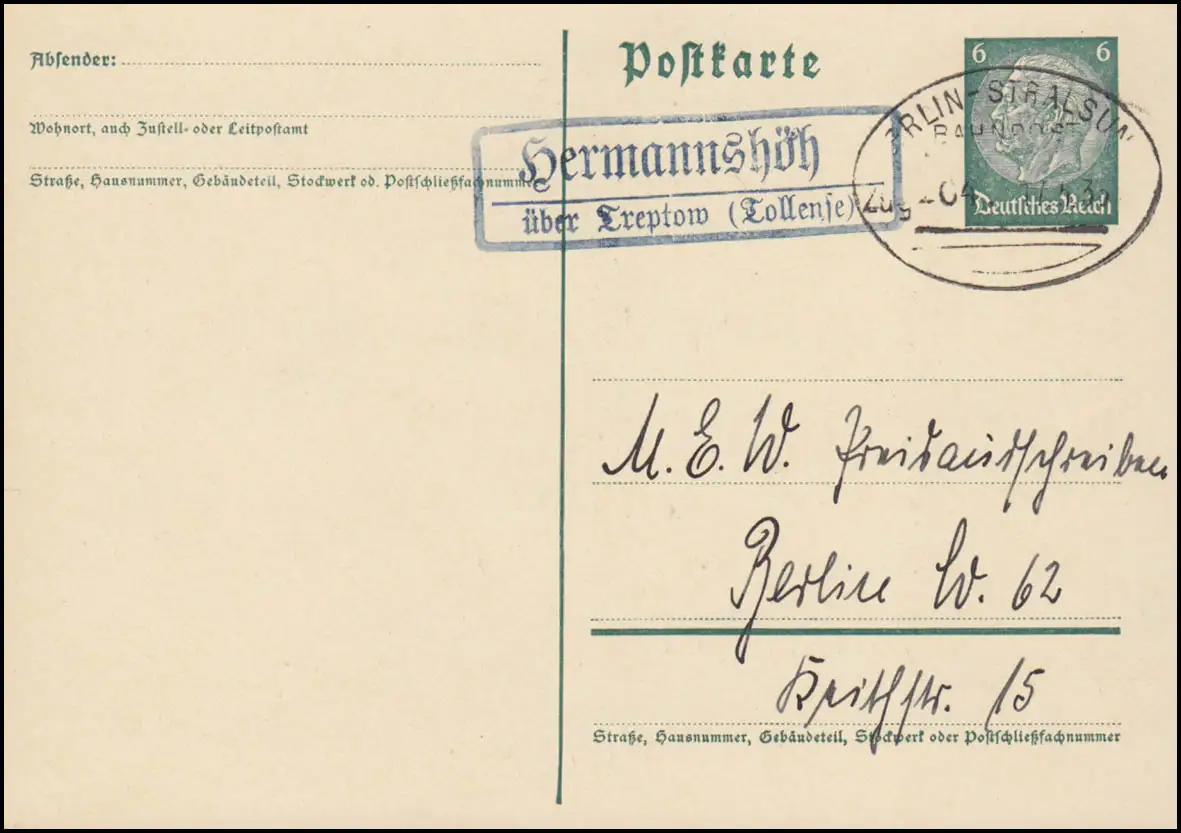 Absender:
Wohnort, auch Zustell- oder Leitpostamt
Straße, Hausnummer, Gebäudeteil, Stockwerk od. Postschließfachnummer
Postkarte
6 6
Deutsches Reich
Hermannshöh
über Treptow (Tollense)
RLIN-STRALSUN
BAHNPOST
Zug
M. E. W. Preisausschreiben
Berlin W. 62
Keithstr. 15
Straße, Hausnummer, Gebäudeteil, Stockwerk oder Postschließfachnummer